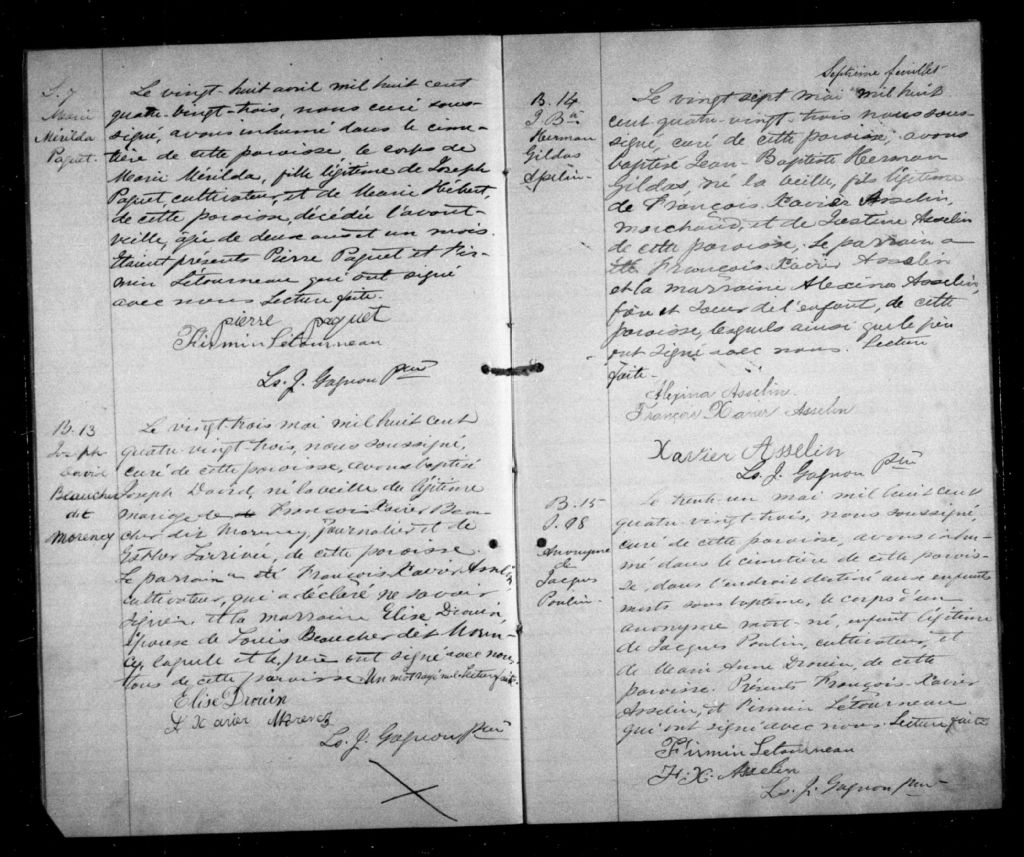 S. 7
Marie
Mérilda
Paquet.
Le vingt-huit avril mil huit cent
quatre-vingt-trois, nous curé sous-
signé, avons inhumé dans le cime-
tière de cette paroisse le corps de
Marie Mérilda, fille légitime de Joseph
Paquet, cultivateur, et de Marie Hébert,
de cette paroisse, décédée l'avant-
veille, âgée de deux ans et un mois.
Etaient présents Pierre Paquet et Fir-
min Létourneau qui ont signé
avec nous. Lecture faite.
pierre paquet
Firmin Letourneau
Ls. J. Gagnon ptre
B. 13
Joseph
David
Beaucher
dit
Morency
Le vingt-trois mai mil huit cent
quatre-vingt-trois, nous soussigné,
curé de cette paroisse, avons baptisé
Joseph David, né la veille du légitime
mariage de François Xavier Beau-
cher dit Morency, journalier et de
Esther Larrivée, de cette paroisse.
Le parrain a été François Xavier Asselin,
cultivateur, qui a déclaré ne savoir
signer et la marraine Elise Drouin,
épouse de Louis Beaucher dit Moren-
cy, laquelle et le père ont signé avec nous,
tous de cette paroisse. Un mot rayé nul. Lecture faite.
Elise Drouin
F. Xavier Morency
Ls. J. Gagnon ptre
Septième feuillet
B. 14
J. Bte
Herman
Gildas
Asselin
Le vingt-sept mai mil huit
cent quatre-vingt-trois nous sous-
signé, curé de cette paroisse, avons
baptisé Jean-Baptiste Herman
Gildas, né la veille, fils légitime
de François Xavier Asselin,
marchand, et de Justine Asselin
de cette paroisse. Le parrain a
été François Xavier Asselin
et la marraine Alexina Asselin,
frère et soeur de l'enfant, de cette
paroisse, lesquels ainsi que le père
ont signé avec nous. Lecture
faite.
Alexina Asselin
François Xavier Asselin
Xavier Asselin
Ls. J. Gagnon ptre
B. 15
S. 8
Anonyme
de
Jacques
Poulin
Le trente-un mai mil huit cent
quatre-vingt-trois, nous soussigné,
curé de cette paroisse, avons inhu-
mé dans le cimetière de cette parois-
se, dans l'endroit destiné aux enfants
morts sous baptême, le corps d'un
anonyme mort-né, enfant légitime
de Jacques Poulin, cultivateur, et
de Marie Anne Drouin, de cette
paroisse. Présents François Xavier
Asselin, et Firmin Létourneau
qui ont signé avec nous. Lecture faite
Firmin Letourneau
F. X. Asselin
Ls. J. Gagnon ptre